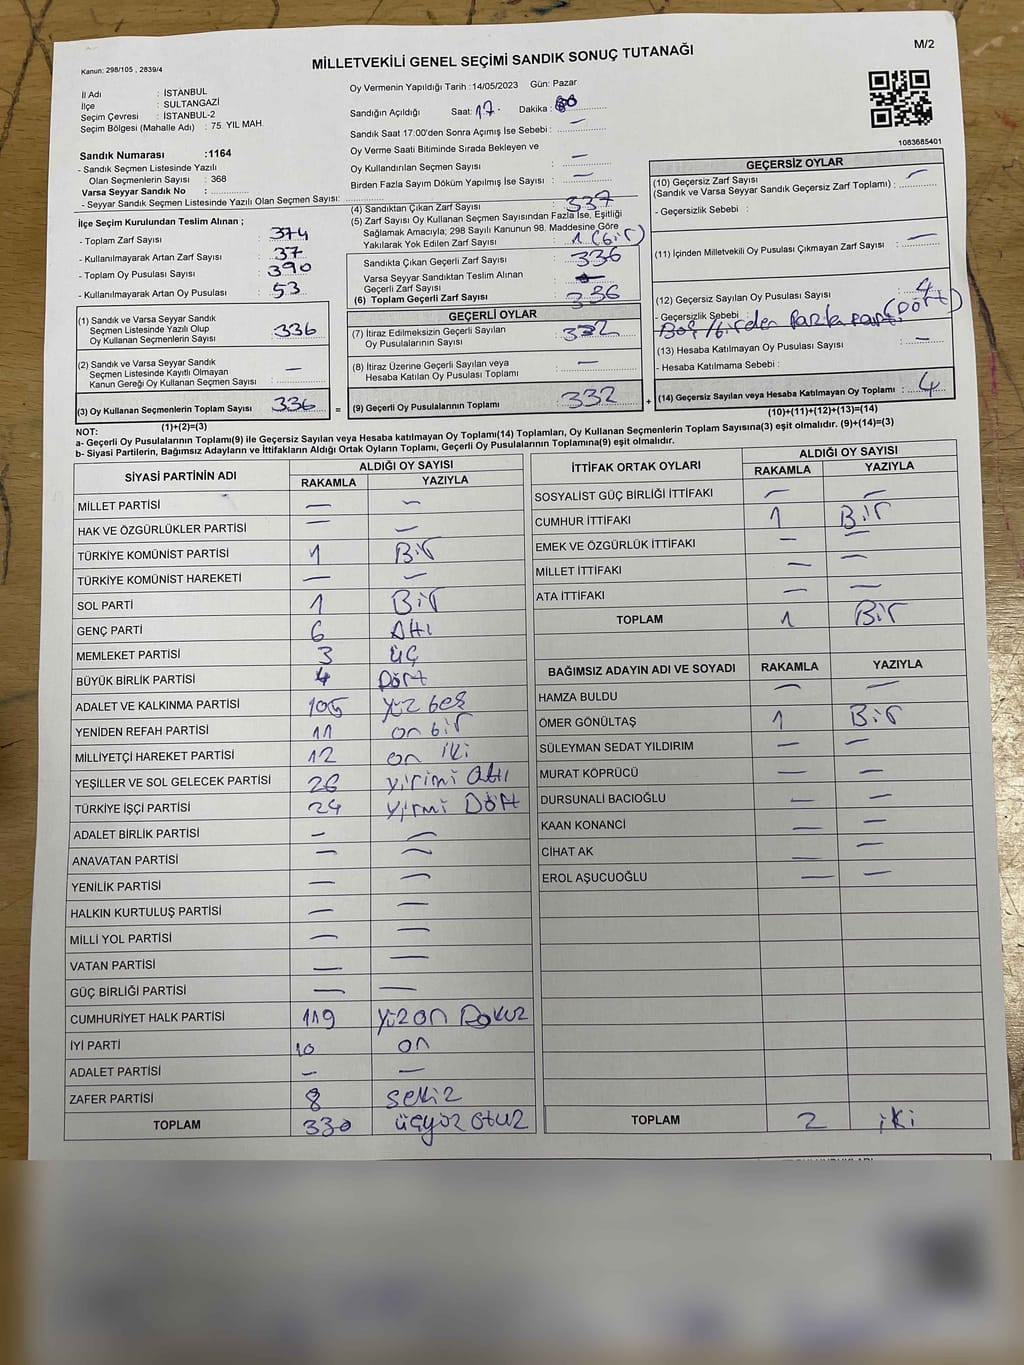 M/2
MİLLETVEKİLİ GENEL SEÇİMİ SANDIK SONUÇ TUTANAĞI
Kanun: 298/105 , 2839/4
İl Adı : İSTANBUL
İlçe : SULTANGAZİ
Seçim Çevresi : İSTANBUL-2
Seçim Bölgesi (Mahalle Adı) : 75. YIL MAH.
Sandık Numarası :1164
- Sandık Seçmen Listesinde Yazılı
Olan Seçmenlerin Sayısı : 368
Varsa Seyyar Sandık No :
- Seyyar Sandık Seçmen Listesinde Yazılı Olan Seçmen Sayısı:
Oy Vermenin Yapıldığı Tarih :14/05/2023 Gün: Pazar
Sandığın Açıldığı Saat: 17. Dakika :
Sandık Saat 17:00'den Sonra Açımış İse Sebebi : —
Oy Verme Saati Bitiminde Sırada Bekleyen ve
Oy Kullandırılan Seçmen Sayısı —
Birden Fazla Sayım Döküm Yapılmış İse Sayısı : —
1083685401
İlçe Seçim Kurulundan Teslim Alınan ;
- Toplam Zarf Sayısı : 374
- Kullanılmayarak Artan Zarf Sayısı : 37
- Toplam Oy Pusulası Sayısı : 390
- Kullanılmayarak Artan Oy Pusulası : 53
(1) Sandık ve Varsa Seyyar Sandık
Seçmen Listesinde Yazılı Olup
Oy Kullanan Seçmenlerin Sayısı : 336
(2) Sandık ve Varsa Seyyar Sandık
Seçmen Listesinde Kayıtlı Olmayan
Kanun Gereği Oy Kullanan Seçmen Sayısı : —
(3) Oy Kullanan Seçmenlerin Toplam Sayısı 336
(1)+(2)=(3)
(4) Sandıktan Çıkan Zarf Sayısı : 337
(5) Zarf Sayısı Oy Kullanan Seçmen Sayısından Fazla İse, Eşitliği
Sağlamak Amacıyla; 298 Sayılı Kanunun 98. Maddesine Göre
Yakılarak Yok Edilen Zarf Sayısı : 1 (Bir)
Sandıkta Çıkan Geçerli Zarf Sayısı : 336
Varsa Seyyar Sandıktan Teslim Alınan
Geçerli Zarf Sayısı :
(6) Toplam Geçerli Zarf Sayısı : 336
GEÇERLİ OYLAR
(7) İtiraz Edilmeksizin Geçerli Sayılan
Oy Pusulalarının Sayısı : 332
(8) İtiraz Üzerine Geçerli Sayılan veya
Hesaba Katılan Oy Pusulası Toplamı : —
= (9) Geçerli Oy Pusulalarının Toplamı : 332 +
GEÇERSİZ OYLAR
(10) Geçersiz Zarf Sayısı
(Sandık ve Varsa Seyyar Sandık Geçersiz Zarf Toplamı) : —
- Geçersizlik Sebebi :
(11) İçinden Milletvekili Oy Pusulası Çıkmayan Zarf Sayısı : —
(12) Geçersiz Sayılan Oy Pusulası Sayısı : 4 (Dört)
- Geçersizlik Sebebi :
Boş / birden fazla parti
(13) Hesaba Katılmayan Oy Pusulası Sayısı : —
- Hesaba Katılmama Sebebi :
(14) Geçersiz Sayılan veya Hesaba Katılmayan Oy Toplamı : 4
(10)+(11)+(12)+(13)=(14)
NOT:
a- Geçerli Oy Pusulalarının Toplamı(9) ile Geçersiz Sayılan veya Hesaba katılmayan Oy Toplamı(14) Toplamları, Oy Kullanan Seçmenlerin Toplam Sayısına(3) eşit olmalıdır. (9)+(14)=(3)
b- Siyasi Partilerin, Bağımsız Adayların ve İttifakların Aldığı Ortak Oyların Toplamı, Geçerli Oy Pusulalarının Toplamına(9) eşit olmalıdır.
SİYASİ PARTİNİN ADI ALDIĞI OY SAYISI
RAKAMLA YAZIYLA
MİLLET PARTİSİ — —
HAK VE ÖZGÜRLÜKLER PARTİSİ — —
TÜRKİYE KOMÜNİST PARTİSİ 1 Bir
TÜRKİYE KOMÜNİST HAREKETİ — —
SOL PARTİ 1 Bir
GENÇ PARTİ 6 Altı
MEMLEKET PARTİSİ 3 üç
BÜYÜK BİRLİK PARTİSİ 4 Dört
ADALET VE KALKINMA PARTİSİ 105 yüz beş
YENİDEN REFAH PARTİSİ 11 on bir
MİLLİYETÇİ HAREKET PARTİSİ 12 on iki
YEŞİLLER VE SOL GELECEK PARTİSİ 26 yirimi altı
TÜRKİYE İŞÇİ PARTİSİ 24 yirmi Dört
ADALET BİRLİK PARTİSİ — —
ANAVATAN PARTİSİ — —
YENİLİK PARTİSİ — —
HALKIN KURTULUŞ PARTİSİ — —
MİLLİ YOL PARTİSİ — —
VATAN PARTİSİ — —
GÜÇ BİRLİĞİ PARTİSİ — —
CUMHURİYET HALK PARTİSİ 119 yüz on Dokuz
İYİ PARTİ 10 on
ADALET PARTİSİ — —
ZAFER PARTİSİ 8 sekiz
TOPLAM 330 üçyüz otuz
İTTİFAK ORTAK OYLARI ALDIĞI OY SAYISI
RAKAMLA YAZIYLA
SOSYALİST GÜÇ BİRLİĞİ İTTİFAKI — —
CUMHUR İTTİFAKI 1 Bir
EMEK VE ÖZGÜRLÜK İTTİFAKI — —
MİLLET İTTİFAKI — —
ATA İTTİFAKI — —
TOPLAM 1 Bir
BAĞIMSIZ ADAYIN ADI VE SOYADI RAKAMLA YAZIYLA
HAMZA BULDU — —
ÖMER GÖNÜLTAŞ 1 Bir
SÜLEYMAN SEDAT YILDIRIM — —
MURAT KÖPRÜCÜ — —
DURSUNALİ BACIOĞLU — —
KAAN KONANCİ — —
CİHAT AK — —
EROL AŞUCUOĞLU — —
TOPLAM 2 iki